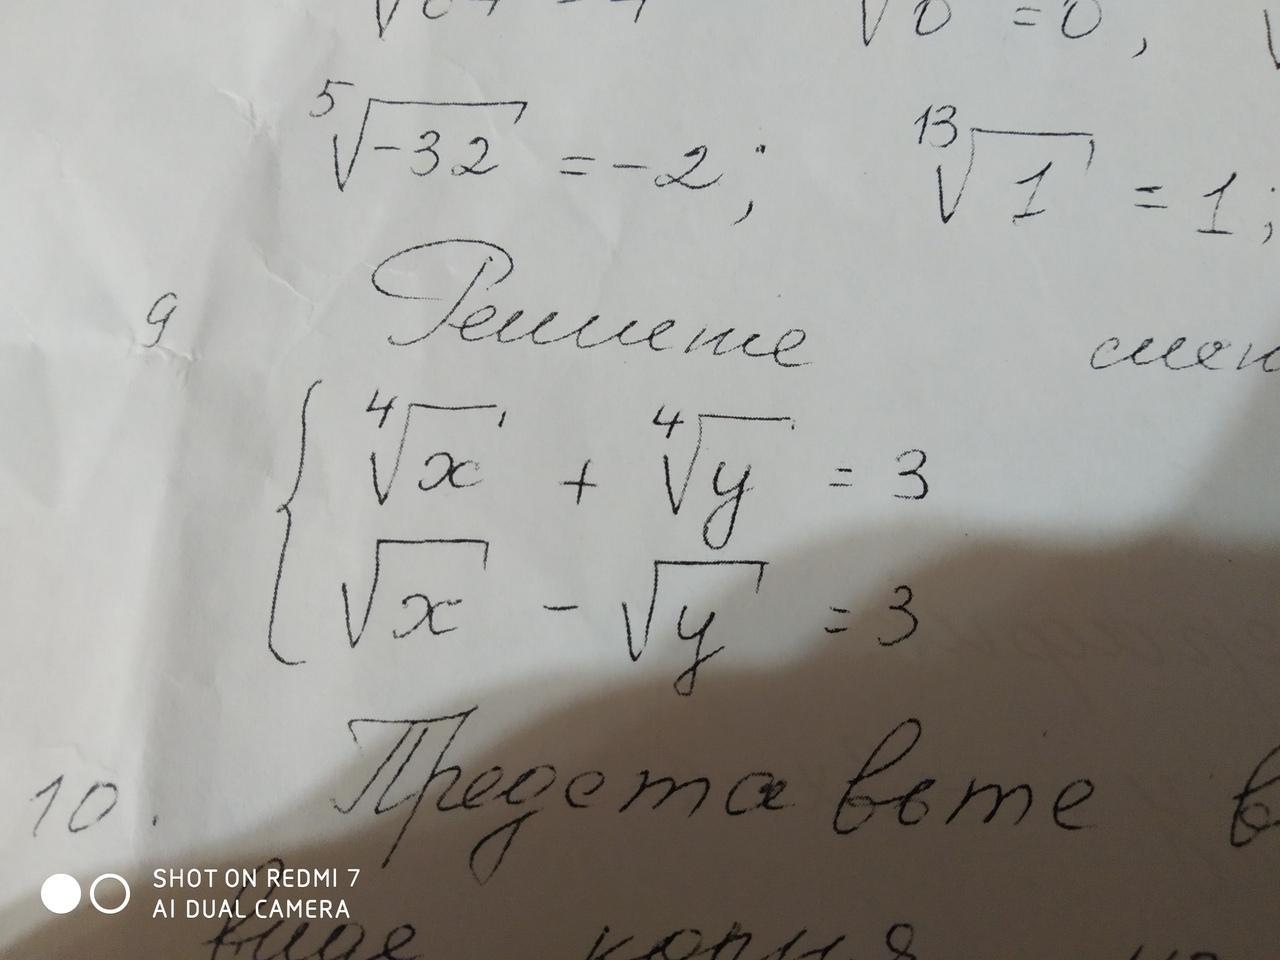 ⁵√-32 = -2; ¹³√1 = 1;
9 Решите
⁴√x + ⁴√y = 3
√x - √y = 3
10. Представьте в
виде корня
SHOT ON REDMI 7
AI DUAL CAMERA